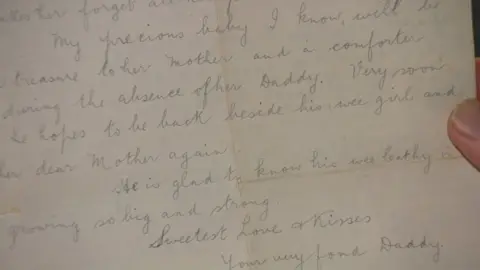 her forget all
My precious baby I know, will be
a treasure to her Mother and a comforter
during the absence of her Daddy. Very soon
he hopes to be back beside his wee girl and
her dear Mother again.
He is glad to know his wee Cathy is
growing so big and strong
Sweetest Love & Kisses
Your very fond Daddy.